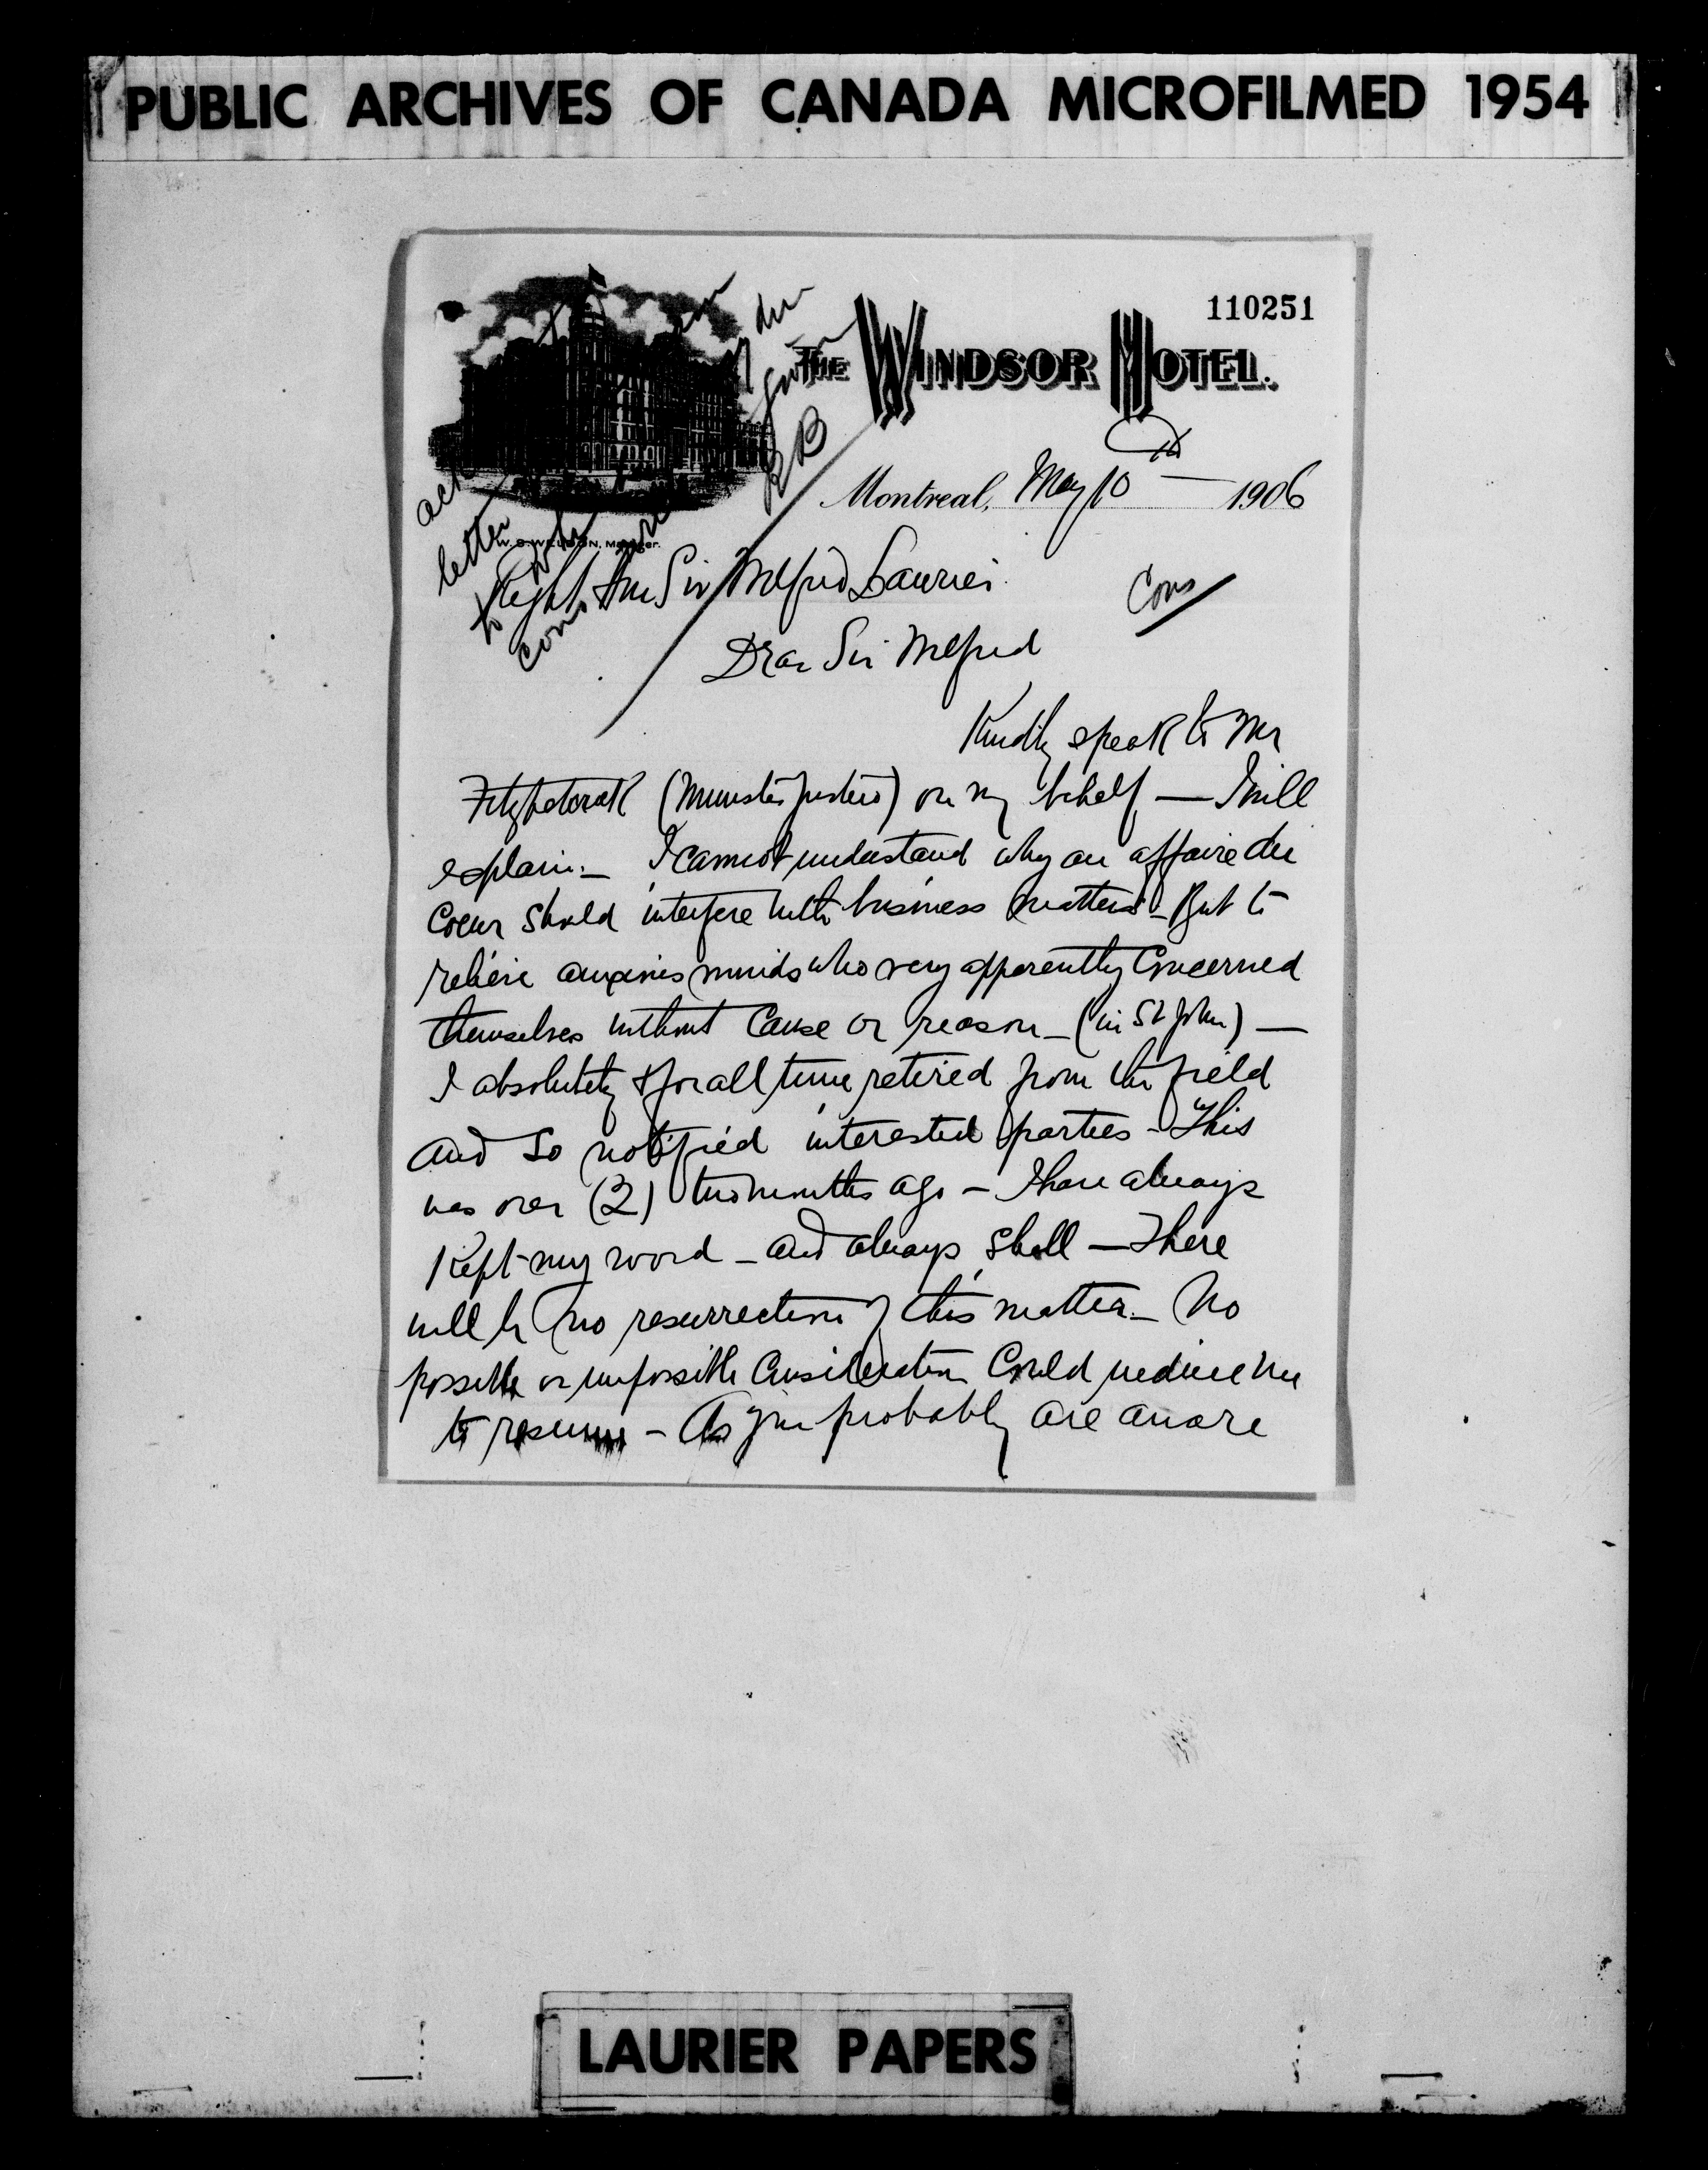 PUBLIC ARCHIVES OF CANADA MICROFILMED 1954
110251
THE WINDSOR HOTEL.
Montreal, May 10th 1906
W. S. WELDON, Manager.
ack
letter
to
com
RB
Right Hon Sir Wilfrid Laurier
Cons
Dear Sir Wilfrid
Kindly speak to Mr
Fitzpatrick (Minister Justice) on my behalf — I will
explain. — I cannot understand why an affaire du
Coeur should interfere with business matters — But to
relieve anxious minds who very apparently Concerned
themselves without Cause or reason — (in St John) —
I absolutely & for all time retired from the field
and so notified interested parties — This
was over (2) two months ago — I have always
Kept my word — and always shall — There
will be no resurrection of this matter — No
possible or impossible Consideration Could induce me
to resume — As you probably are aware
LAURIER PAPERS